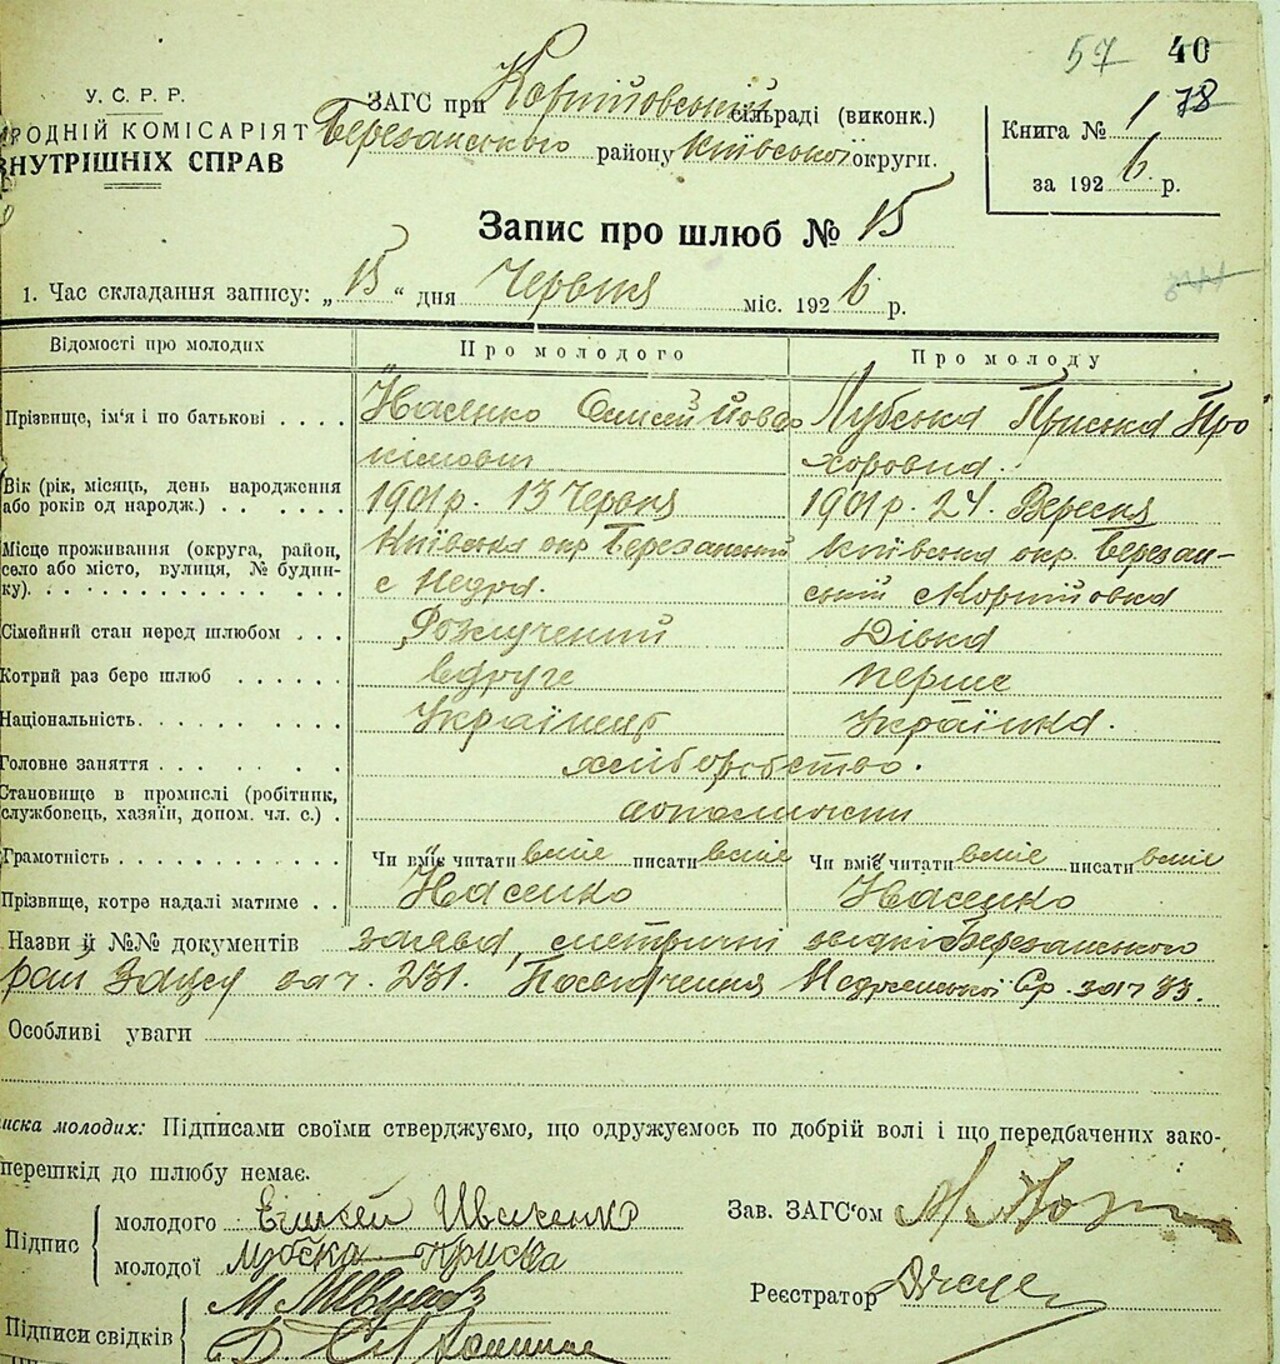 57 40
У. С. Р. Р.
РОДНІЙ КОМІСАРІЯТ
ВНУТРІШНІХ СПРАВ
ЗАГС при сільраді (виконк.)
Березанського району Київської округи.
Книга № 1 78
за 1926 р.
Запис про шлюб № 15
1. Час складання запису: „15“ дня Червня міс. 1926 р.
Відомості про молодих
Про молодого
Про молоду
Прізвище, ім‘я і по батькові . . . .
Олисей Йова
кімович
Лубська Приська Про
хоровна.
Вік (рік, місяць, день народження
або років од народж.) . . . . . .
1901 р. 13 Червня
1901 р. 24. Вересня
Місце проживання (округа, район,
село або місто, вулиця, № будин-
ку). . . . . . . . . . . . . . . .
Київська окр Березанський
с Недра.
Київська окр. Березан-
ський
Сімейний стан перед шлюбом . . .
Розлучений
Дівка
Котрий раз бере шлюб . . . . . .
вдруге
перше
Національність. . . . . . . . . .
Українець
Українка.
Головне заняття . . . . . . . .
хліборобство.
Становище в промислі (робітник,
службовець, хазяїн, допом. чл. с.) .
Грамотність . . . . . . . . . . . .
Чи вміє читати вміє писати вміє
Чи вміє читати вміє писати вміє
Прізвище, котре надалі матиме . .
Назви й №№ документів заява, метричні Березанського
рай Загсу за ч. 231. Посвідчення Ср. за ч 33.
Особливі уваги
иска молодих: Підписами своїми стверджуємо, що одружуємось по добрій волі і що передбачених зако-
перешкід до шлюбу немає.
Підпис
молодого
молодої Лубска Приска
Зав. ЗАГС‘ом
Реєстратор
Підписи свідків